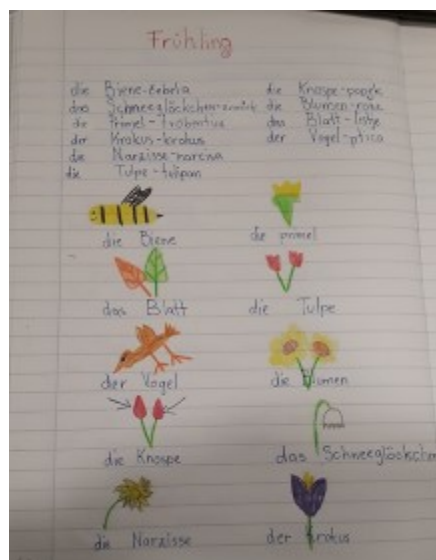 Frühling
die Biene-čebela
das Schneeglöckchen-zvonček
die Primel-trobentica
der Krokus-krokus
die Narzisse-narcisa
die Tulpe-tulipan
die Knospe-popek
die Blumen-rože
das Blatt-listje
der Vogel-ptica
die Biene
die primel
das Blatt
die Tulpe
der Vogel
die Blumen
die Knospe
das Schneeglöckchen
die Narzisse
der Krokus